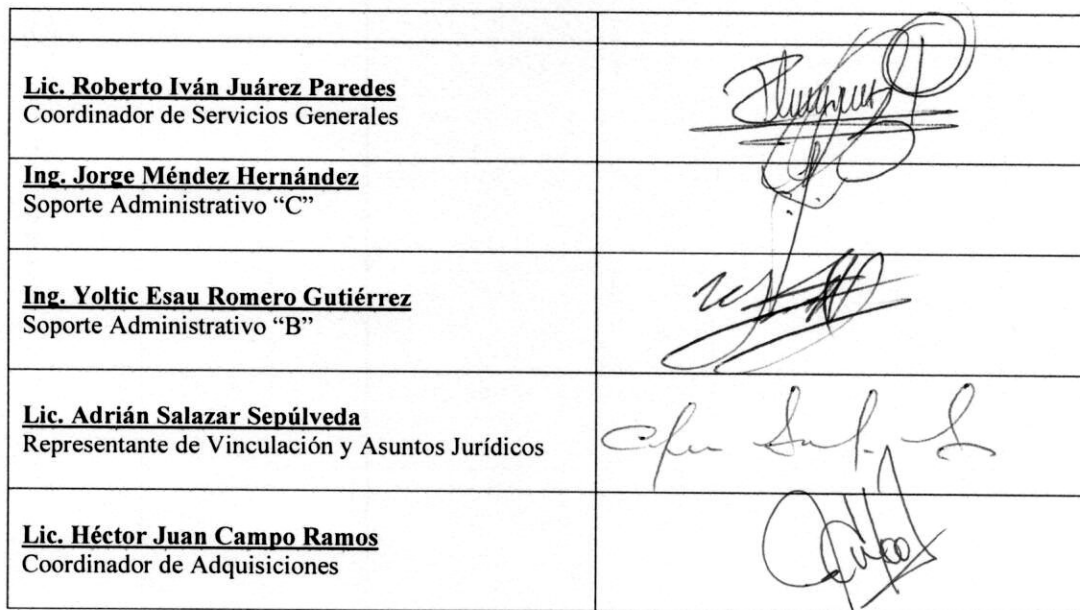 Lic. Roberto Iván Juárez Paredes
Coordinador de Servicios Generales
Ing. Jorge Méndez Hernández
Soporte Administrativo “C”
Ing. Yoltic Esau Romero Gutiérrez
Soporte Administrativo “B”
Lic. Adrián Salazar Sepúlveda
Representante de Vinculación y Asuntos Jurídicos
Lic. Héctor Juan Campo Ramos
Coordinador de Adquisiciones